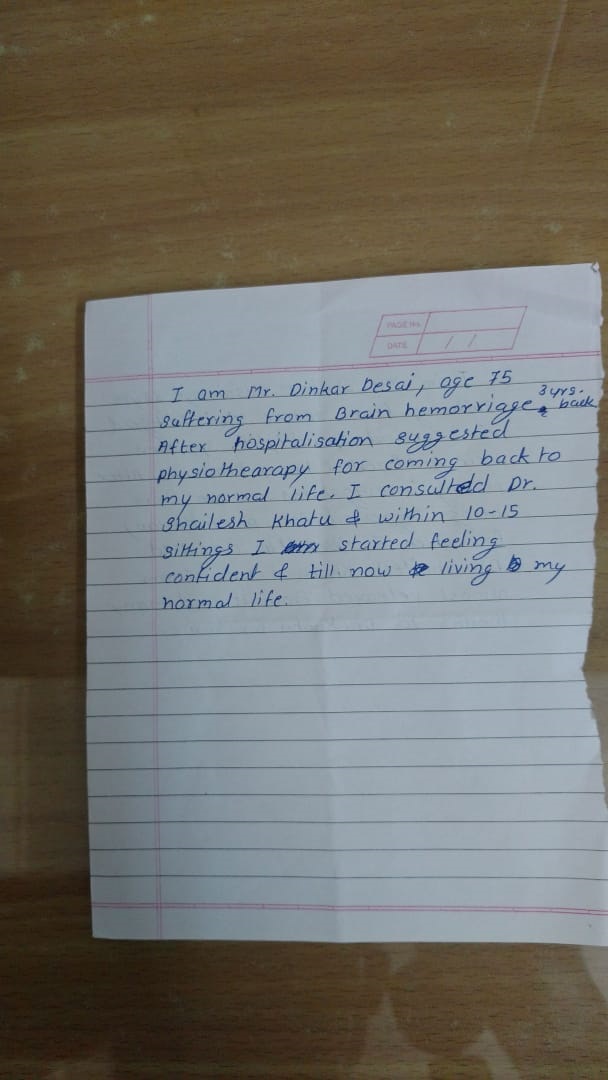 PAGE No.
DATE / /
I am Mr. Dinkar Desai, age 75
suffering from Brain hemorriage 3 yrs. back
After hospitalisation suggested
physiothearapy for coming back to
my normal life. I consulted Dr.
Shailesh Khatu & within 10-15
sittings I started feeling
confident & till now living my
normal life.